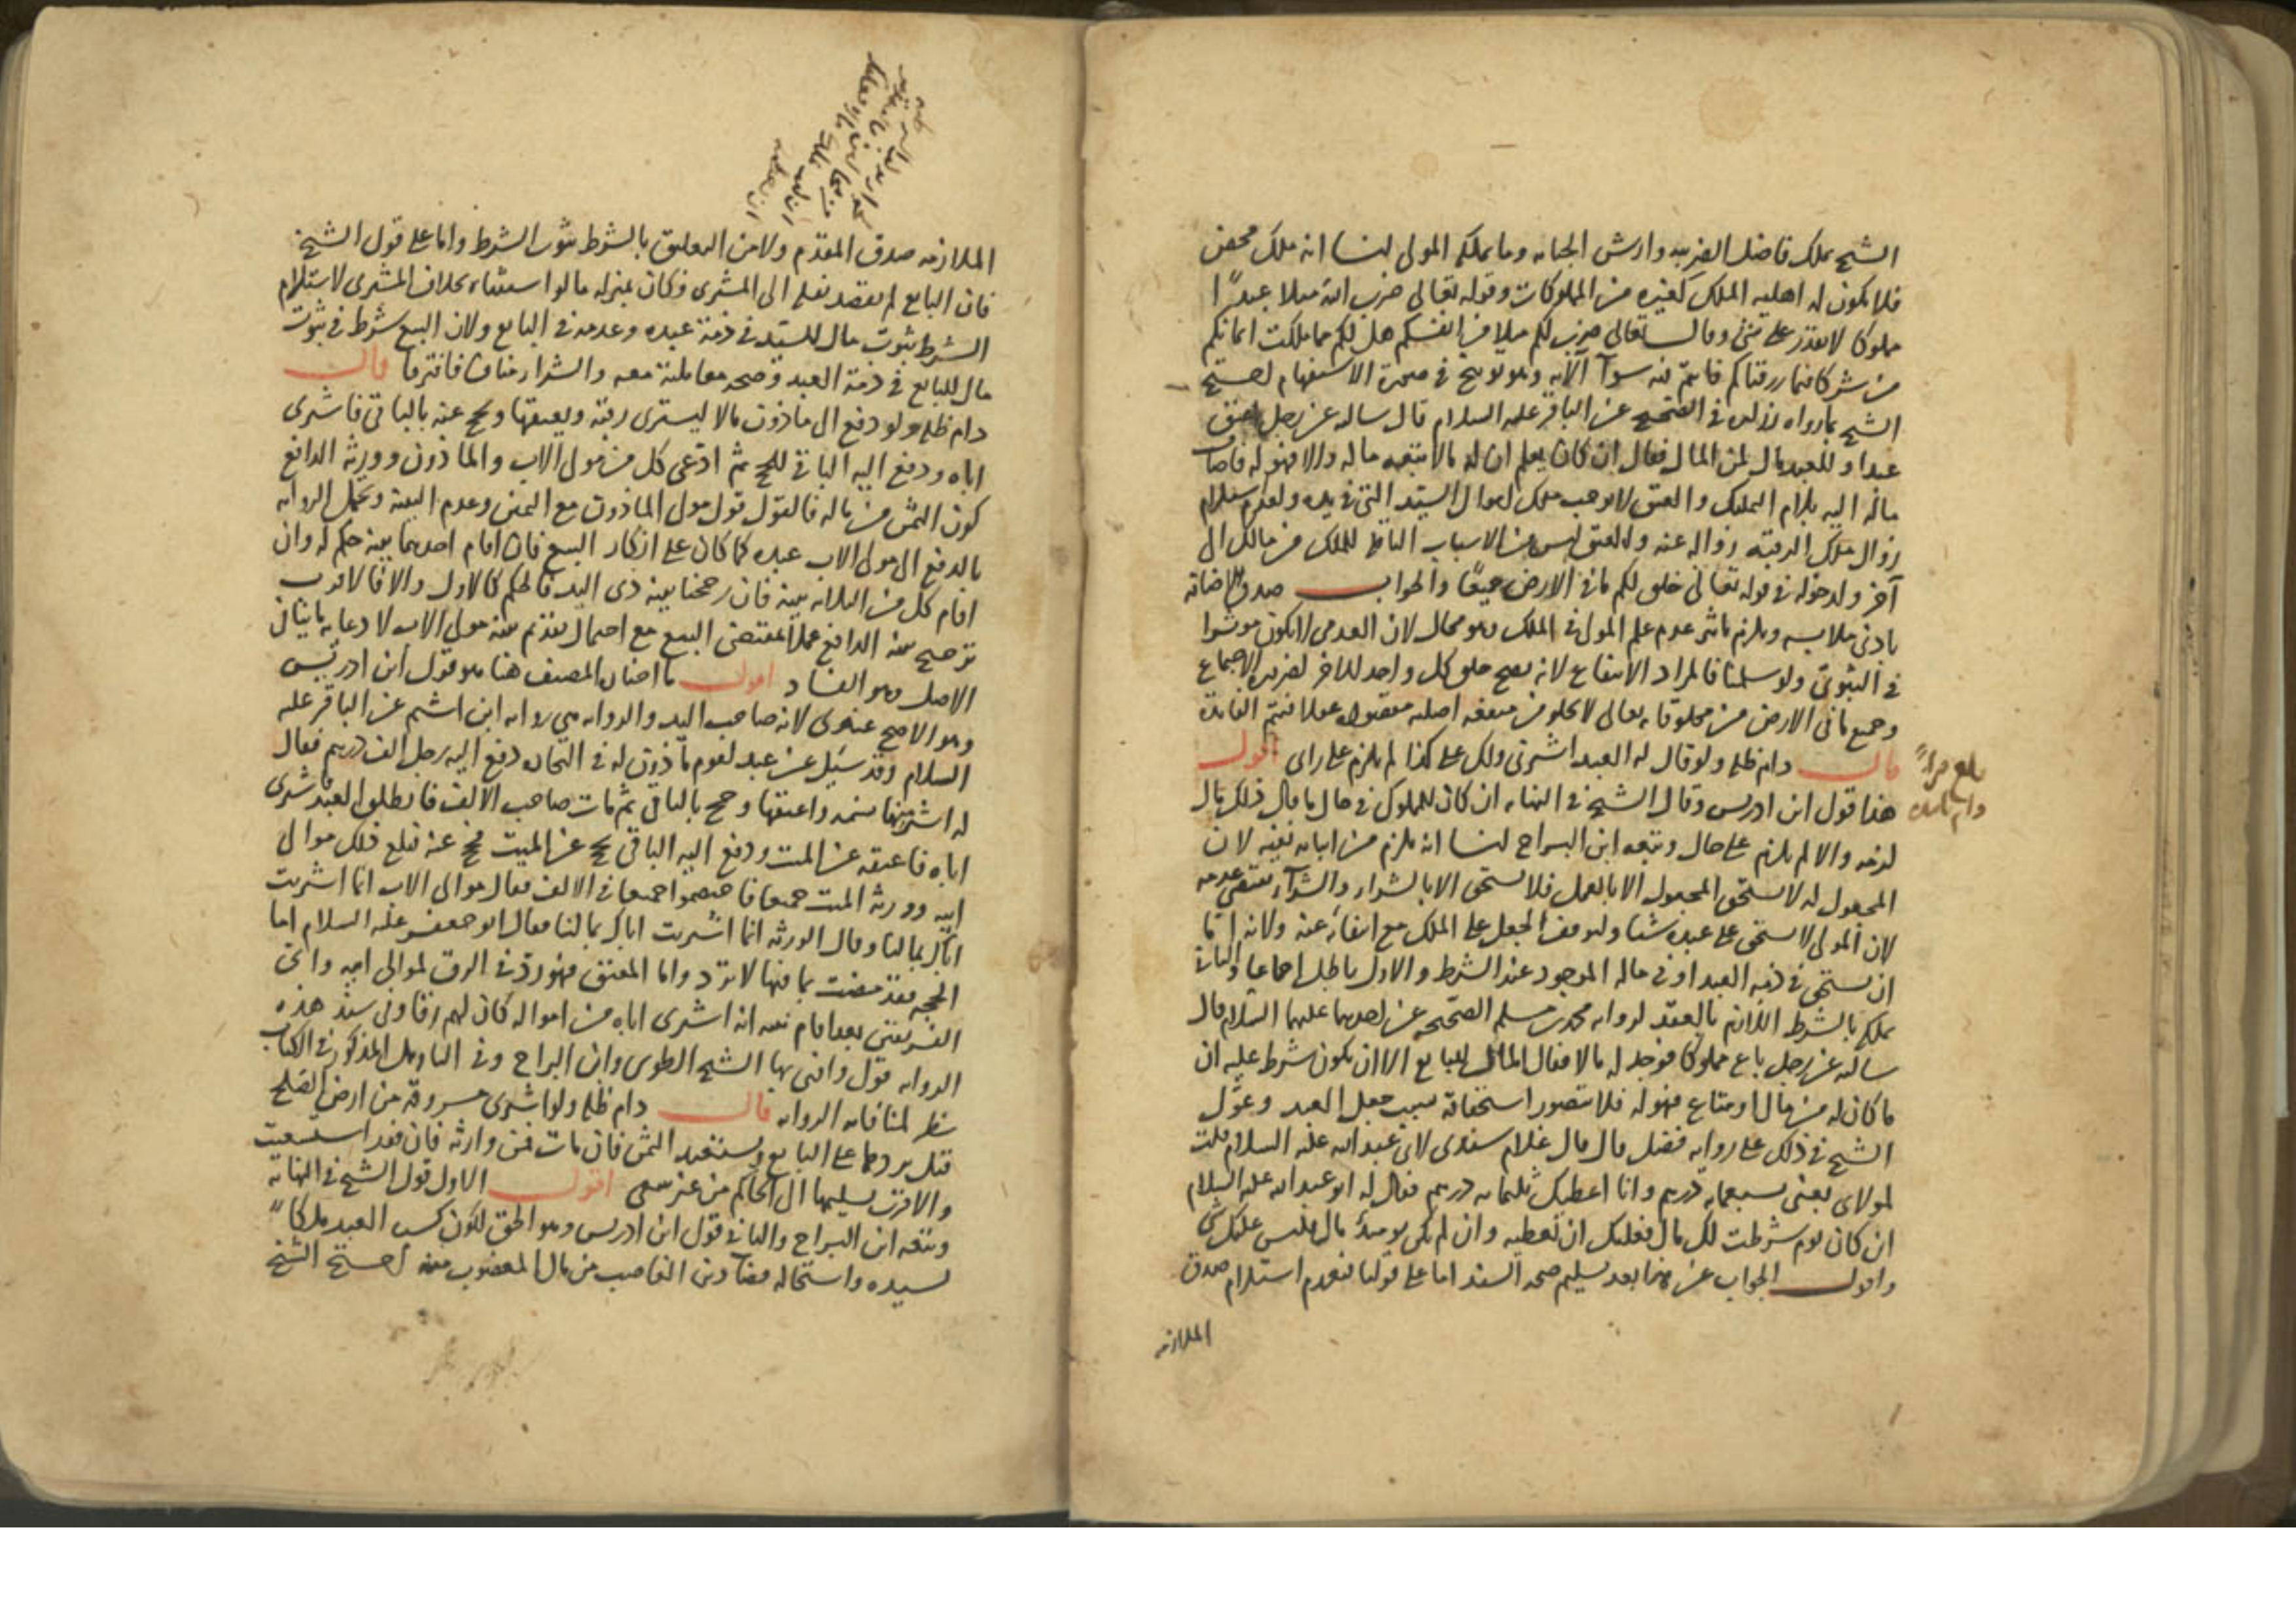 الشيخ يملك فاضل الضريبه وارش الجنايه وما يملكه المولى لنا انه ملك محض
فلا يكون له اهليه الملك كغيره من المملوكات وقوله تعالى ضرب الله مثلا عبدًا
مملوكا لا يقدر على شئ وقال تعالى ضرب لكم مثلا من انفسكم هل لكم مما ملكت ايمانكم
من شركاء فيما رزقناكم فانتم فيه سوآ الآيه وهو توبيخ في صورة الاستفهام احتج
الشيخ بما رواه زراره في الصحيح عن الباقر عليه السلام قال ساله عن رجل اعتق
عبدا وللعبد مال لمن المال فقال ان كان يعلم ان له مالا تبعه ماله والا فهو له فاضاف
ماله اليه بلام التمليك والعتق لا يوجب ملك اموال السيد التى في يده ولعدم استلزام
زوال ملك الرقبه زواله عنه والعتق ليس من الاسباب الناقله للملك من مالك الى
آخر ولدخوله في قوله تعالى خلق لكم ما في الارض جميعًا والجواب صدق الاضافة
بادنى ملابسه ويلزم تاثير عدم علم المولى في الملك وهو محال لان العدمى لا يكون موثرا
في الثبوتى ولو سلمنا فالمراد الانتفاع لانه يصح خلق كل واحد للاخر لضرب الاجتماع
وجميع ما في الارض من مخلوقاته تعالى لا يخلو من منفعه اصليه مقصوده عقلا فتتم الفايدة
قال دام ظله ولو قال له العبد اشترنى ولك على كذا لم يلزم على راى اقول
بلغ مراًٌ
دام ظله
هذا قول ابن ادريس وقال الشيخ في النهايه ان كان للمملوك في حال ما قال ذلك مال
لزمه والا لم يلزم على حال وتبعه ابن البراج لنا انه يلزم من اثباته نفيه لان
المجعول له لا يستحق المجعول الا بالعمل فلا يستحق الا بالشراء والشرآء يقتضى عدمه
لان المولى لا يستحق على عبده شيئا ولتوقف الجعل على الملك مع انتفائه عنه ولانه اما
ان يستحق في ذمه العبد او في ماله الموجود عند الشرط والاول باطل اجماعا والثانى
يملكه بالشرط اللازم بالعقد لروايه محمد بن مسلم الصحيحه عن احدهما عليهما السلام قال
سالته عن رجل باع مملوكا فوجد له مالا فقال المال للبايع الا ان يكون شرط عليه ان
ما كان له من مال او متاع فهو له فلا يتصور استحقاقه بسبب جعل العبد وعوّل
الشيخ في ذلك على روايه فضيل قال قال غلام سندى لابى عبد الله عليه السلام قلت
لمولاى بعنى بسبعمايه درهم وانا اعطيك ثلثمايه درهم فقال له ابو عبد الله عليه السلام
ان كان يوم شرطت لك مال فعليك ان تعطيه وان لم يكن يومئذ مال فليس عليك شئ
واقول الجواب عن هذا بعد تسليم صحه السند اما على قولنا فلعدم استلزام صدق
الملازمه
الملازمه صدق المقدم ولا من التعليق بالشرط ثبوت الشرط واما على قول الشيخ
فان البايع لم يقصد نقله الى المشترى فكان بمنزله ما لو استثناه بخلاف المشترى لاستلزام
الشرط ثبوت مال للسيد في ذمة عبده وعدمه في البايع ولان البيع شرط في ثبوت
مال للبايع في ذمة العبد وصحه معاملته معه والشراء مناف فافترقا قال
دام ظله ولو دفع الى ماذون مالا ليشترى رقبة ويعتقها ويحج عنه بالباقى فاشترى
اباه ودفع اليه الباقى للحج ثم ادّعى كل من مولى الاب والماذون وورثه الدافع
كون الثمن من ماله فالقول قول مولى الماذون مع اليمين وعدم البينه وتحمل الروايه
بالدفع الى مولى الاب عبده كما كان على انكار البيع فان اقام احدهما بينه حكم له وان
اقام كل من الثلاثه بينه فان رجحنا بينه ذى اليد فالحكم كالاول والا فالاقرب
ترجيح بينه الدافع عملا بمقتضى البيع مع احتمال تقديم بينه مولى الاب لادعايه ما ينافى
الاصل وهو الفساد اقول ما اختاره المصنف هنا هو قول ابن ادريس
وهو الاصح عندى لانه صاحب اليد والروايه هي روايه ابن اشيم عن الباقر عليه
السلام وقد سئيل عن عبد لقوم ماذون له في التجاره دفع اليه رجل الف درهم فقال
له اشتر بها نسمه واعتقها وحج بالباقى ثم مات صاحب الالف فانطلق العبد فاشترى
اباه فاعتقه عن الميت ودفع اليه الباقى يحج عن الميت فحج عنه فبلغ ذلك موالى
ابيه وورثه الميت جميعا فاختصموا جميعا في الالف فقال موالى الاب انما اشتريت
اباك بمالنا وقال الورثه انما اشتريت اباك بمالنا فقال ابو جعفر عليه السلام اما
الحجه فقد مضت بما فيها لا ترد واما المعتق فهو رد في الرق لموالى ابيه واى
الفريقين بعد اقام بينه انه اشترى اباه من امواله كان لهم رقا وفى سند هذه
الروايه قول وافتى بها الشيخ الطوسى وابن البراج وفى التاويل المذكور في الكتاب
نظر لمنافاته الروايه قال دام ظله ولو اشترى مسروقه من ارض الصلح
قيل يردها على البايع ويستعيد الثمن فان مات فمن وارثه فان فقد استسعيت
والاقرب تسليمها الى الحاكم من غير سعى اقول الاول قول الشيخ في النهايه
وتبعه ابن البراج والثانى قول ابن ادريس وهو الحق لكون كسب العبد ملكاً
لسيده واستحاله قضاء دين الغاصب من مال المغصوب منه احتج الشيخ